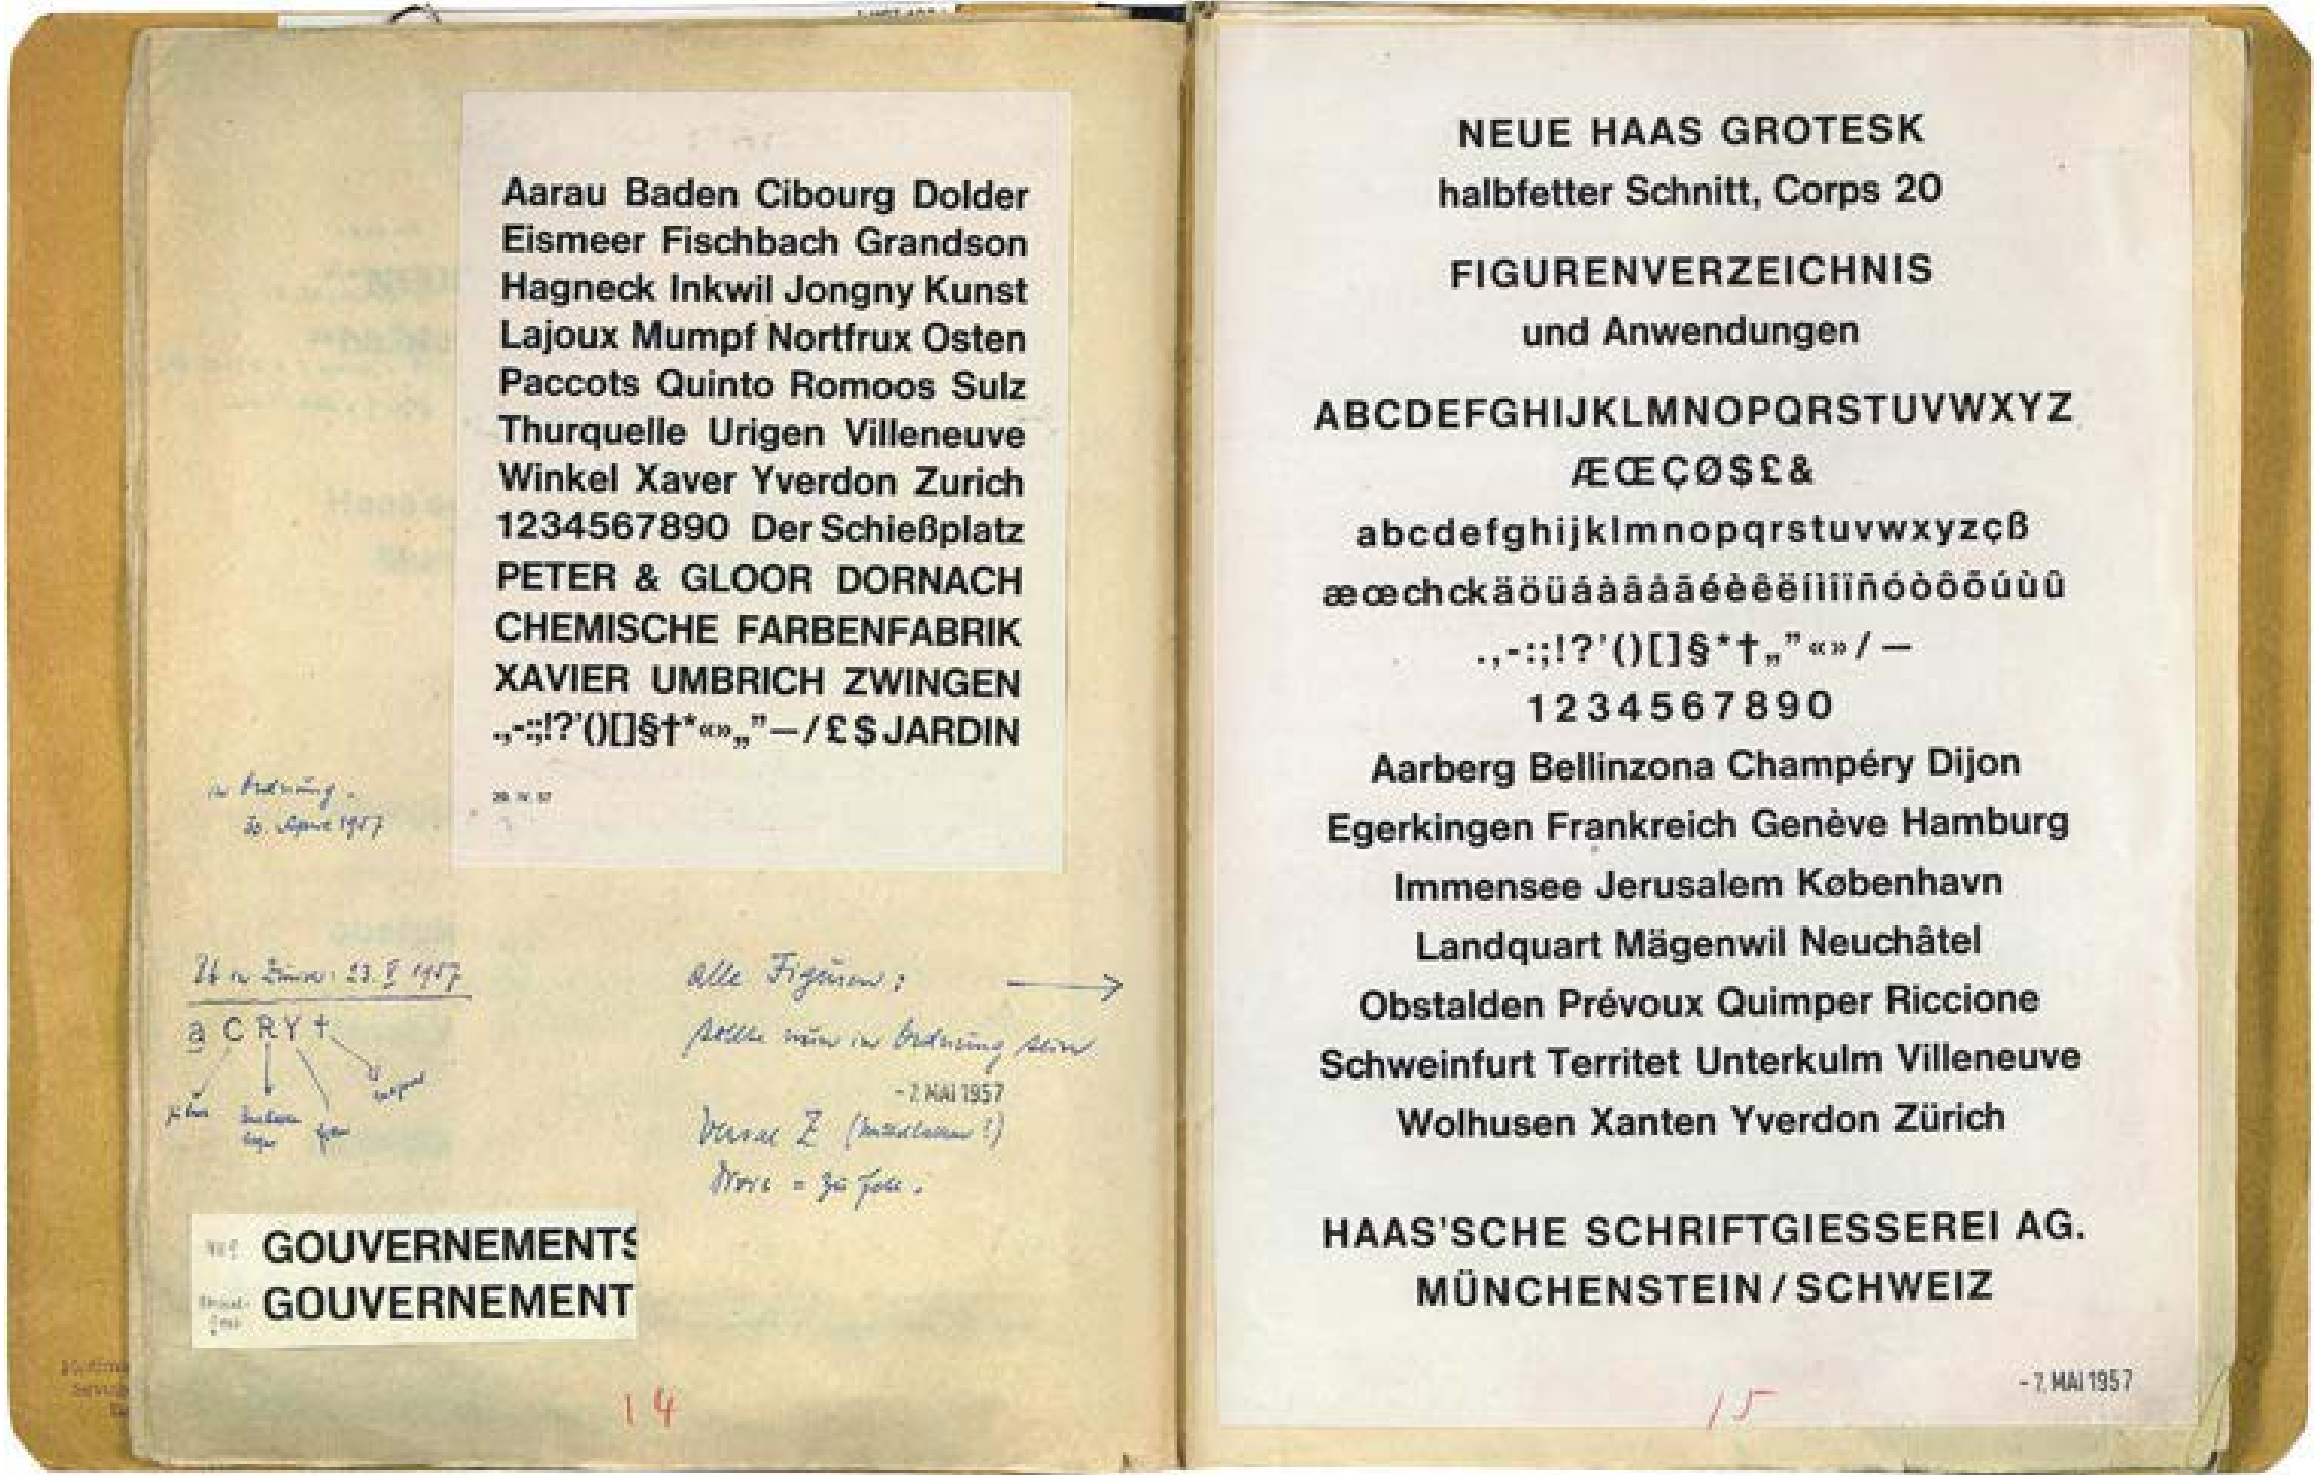 Aarau Baden Cibourg Dolder
Eismeer Fischbach Grandson
Hagneck Inkwil Jongny Kunst
Lajoux Mumpf Nortfrux Osten
Paccots Quinto Romoos Sulz
Thurquelle Urigen Villeneuve
Winkel Xaver Yverdon Zurich
1234567890 Der Schießplatz
PETER & GLOOR DORNACH
CHEMISCHE FARBENFABRIK
XAVIER UMBRICH ZWINGEN
.,-:;!?'()[]§†*«»„”—/£$JARDIN
in Ordnung.
30. April 1957
23. V 1957
a C R Y †
alle Figuren:
sollte nun in Ordnung sein
- 7. MAI 1957
Versal Z
GOUVERNEMENTS
GOUVERNEMENT
14
NEUE HAAS GROTESK
halbfetter Schnitt, Corps 20
FIGURENVERZEICHNIS
und Anwendungen
ABCDEFGHIJKLMNOPQRSTUVWXYZ
ÆŒÇØ$£&
abcdefghijklmnopqrstuvwxyzçß
æœchckäöüáàâåãéèêëíìîïñóòôõúùû
.,-:;!?'()[]§*†„”«»/—
1234567890
Aarberg Bellinzona Champéry Dijon
Egerkingen Frankreich Genève Hamburg
Immensee Jerusalem København
Landquart Mägenwil Neuchâtel
Obstalden Prévoux Quimper Riccione
Schweinfurt Territet Unterkulm Villeneuve
Wolhusen Xanten Yverdon Zürich
HAAS'SCHE SCHRIFTGIESSEREI AG.
MÜNCHENSTEIN/SCHWEIZ
- 7. MAI 1957
15